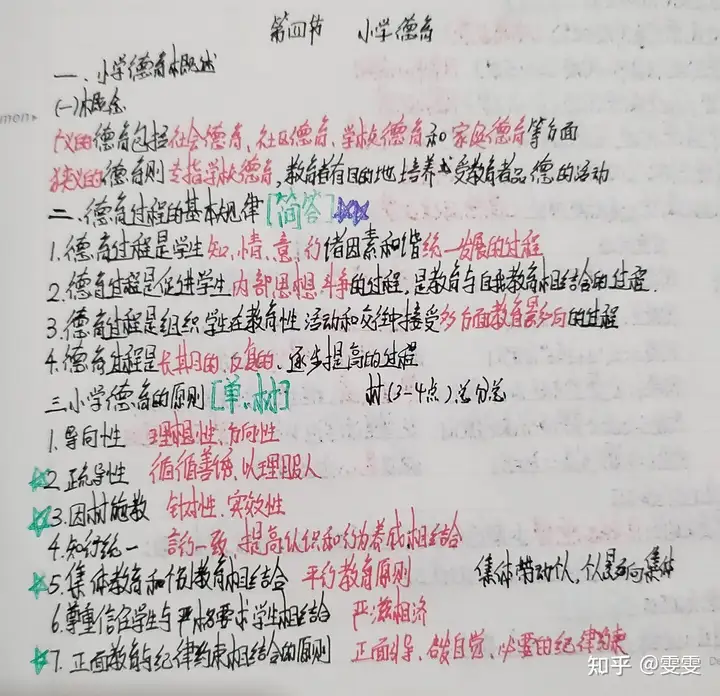 第四节 小学德育
一、小学德育概述
(一)概念
广义的德育包括社会德育、社区德育、学校德育和家庭德育等方面
狭义的德育则专指学校德育,教育者有目的地培养受教育者品德的活动
二、德育过程的基本规律[简答]
1.德育过程是学生知、情、意、行诸因素和谐统一发展的过程
2.德育过程是促进学生内部思想斗争的过程,是教育与自我教育相结合的过程.
3.德育过程是组织学生在教育性活动和交往中接受多方面教育影响的过程
4.德育过程是长期的、反复的、逐步提高的过程
三.小学德育的原则[单、材] 材(3-4点)总分总
1.导向性 理想性、方向性
2.疏导性 循循善诱,以理服人
3.因材施教 针对性、实效性
4.知行统一 言行一致、提高认识和行为养成相结合
5.集体教育和个别教育相结合 平行教育原则 集体带动个人,个人影响集体
6.尊重信任学生与严格要求学生相结合 严慈相济
7.正面教育与纪律约束相结合的原则 正面引导、启发自觉、必要的纪律约束
知乎 @雯雯